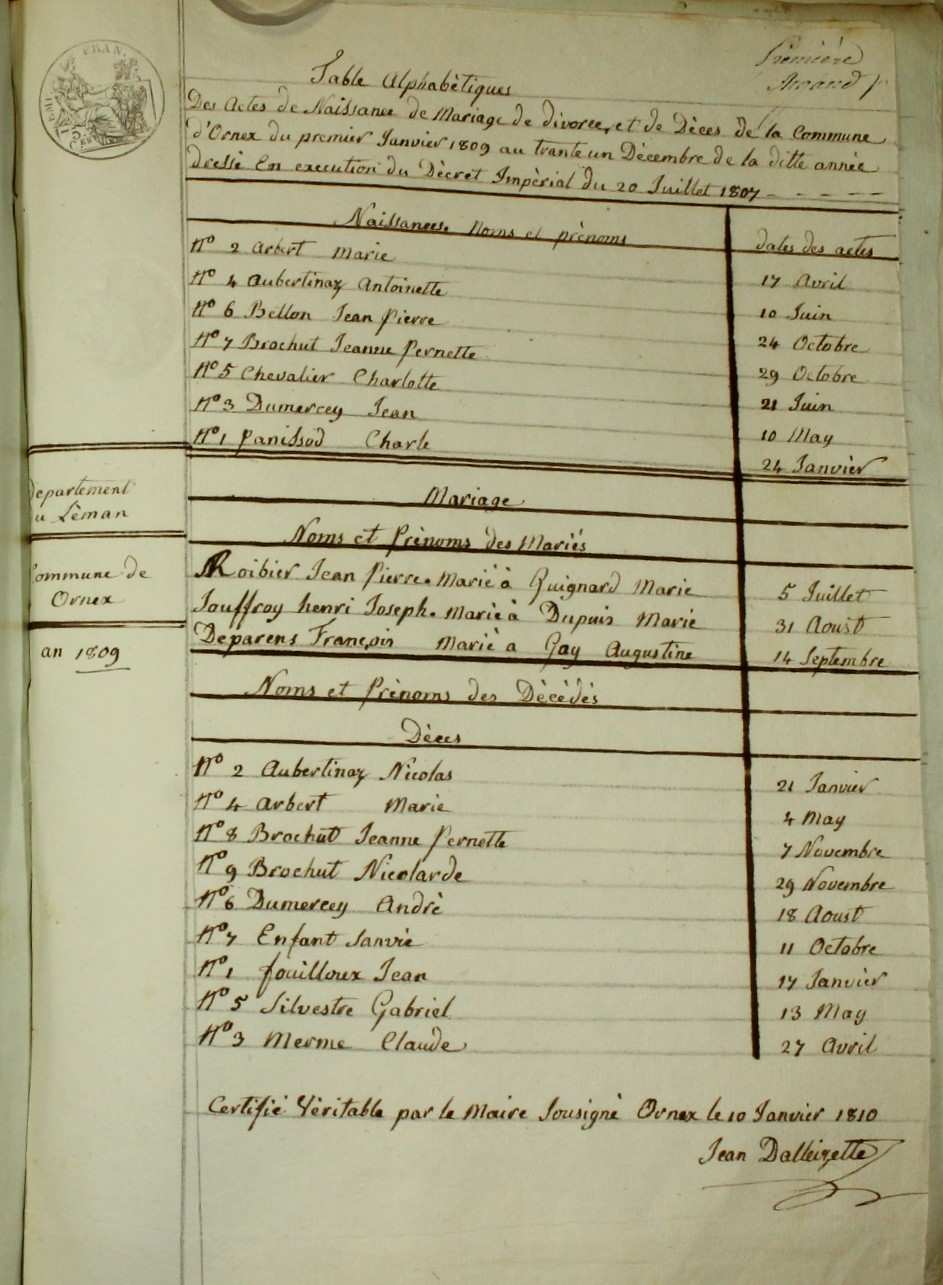 Première
Table Alphabètiques
Des Actes de Naissance de Mariage de divorce, et de Dèces de la Commune
d'Ornex du premier Janvier 1809 au trante un Dècembre de la ditte année
dressé En execution du Dècret Impèrial du 20 Juillet 1807
Naissances. Noms et prènoms dates des actes
N° 2 Arbert Marie 17 Avril
N° 4 Aubertinaz Antoinette 10 Juin
N° 6 Bellon Jean Pierre 24 Octobre
N° 7 Brochut Jeanne Pernette 29 Octobre
N° 5 Chevalier Charlotte 21 Juin
N° 3 Dumercey Jean 10 May
N° 1 Panissod Charle 24 Janvier
Departement
du Lèman
Commune de
Ornex
an 1809
Mariage
Noms et Prènoms des Mariés
Roibier Jean Pierre. Marié à Guignard Marie 5 Juillet
Jouffroy henri Joseph. Marié à Dupuis Marie 31 Aoust
Deparens François Marié a Gay Augustine 14 Septembre
Noms et Prènoms des Dècèdés
Dèces
N° 2 Aubertinaz Nicolas 21 Janvier
N° 4 Arbert Marie 4 May
N° 8 Brochut Jeanne Pernette 7 Novembre
N° 9 Brochut Nicolarde 29 Novembre
N° 6 Dumercey Andrè 18 Aoust
N° 7 Enfant Sanvie 11 Octobre
N° 1 fouilloux Jean 17 Janvier
N° 5 Silvestre Gabriel 13 May
N° 3 Merme Claude 27 Avril
Certifié Vèritable par le Maire Sousigné Ornex le 10 Janvier 1810
Jean Dalleizette